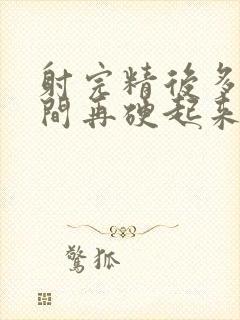 射完精後多
間再硬起來
驚狐